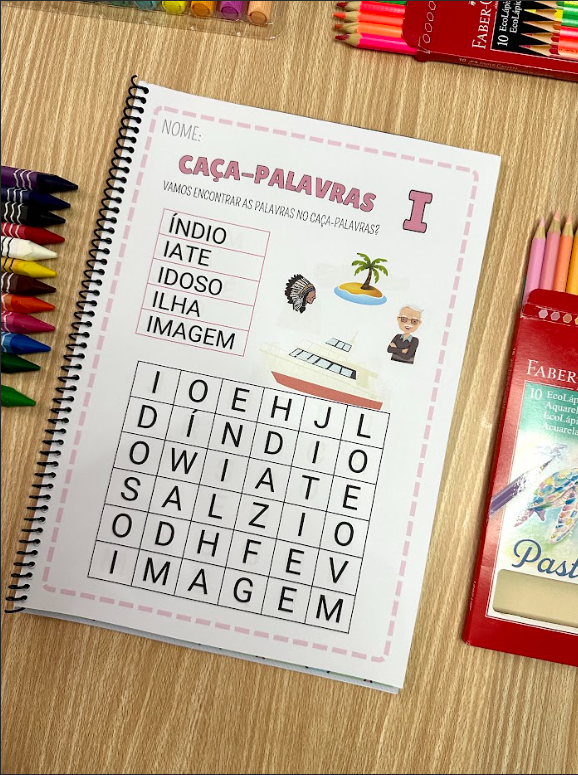 NOME:
CAÇA-PALAVRAS
I
VAMOS ENCONTRAR AS PALAVRAS NO CAÇA-PALAVRAS?
ÍNDIO
IATE
IDOSO
ILHA
IMAGEM
I O E H J L
D Í N D I O
O W I A T E
S A L Z I O
O D H F E V
I M A G E M
FABER-C
10 EcoLáp
EcoLápi
FABER
10 EcoLáp
Aquare
EcoLápi
Acuarela
Past